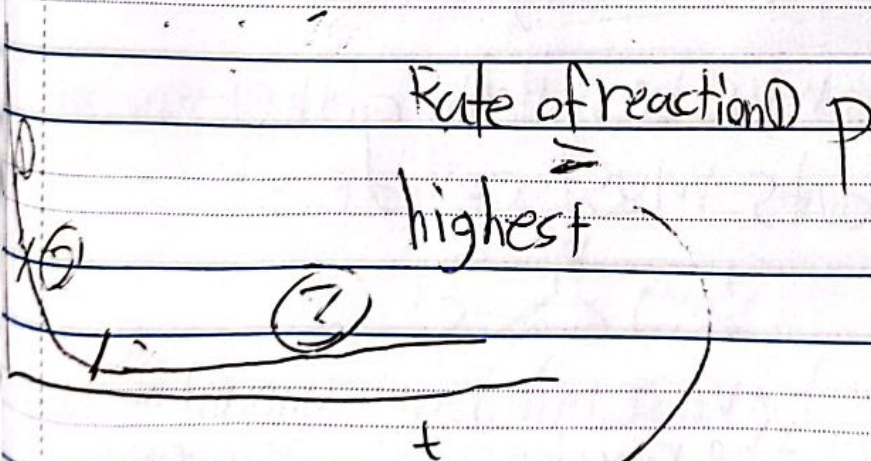 Rate of reaction① P
=
highest
x②
①
t